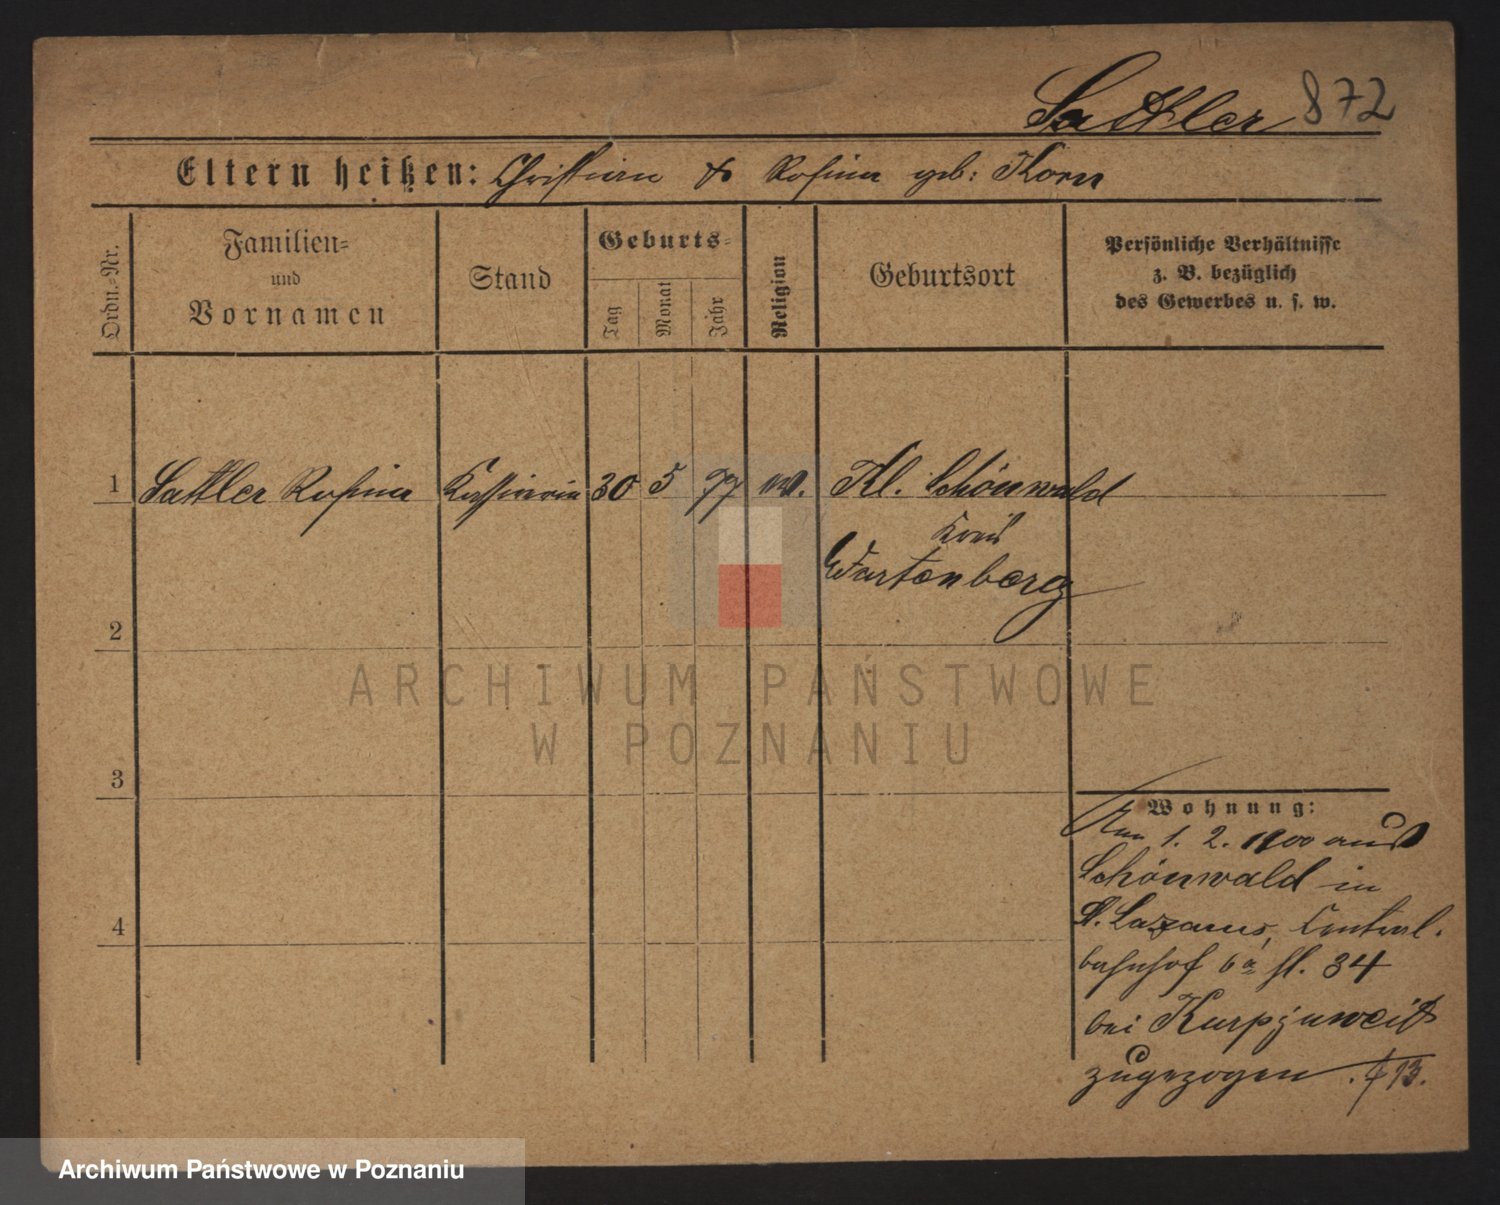 Sattler 872
Eltern heißen: Christian & Rosina geb: Korn
Ordn.-Nr.
Familien-
und
Vornamen
Stand
Geburts-
Tag
Monat
Jahr
Religion
Geburtsort
Persönliche Verhältnisse
z. B. bezüglich
des Gewerbes u. s. w.
1 Sattler Rosina Kassirerin 30 5 77 ev. Kl. Schönwald
Kreis
Wartenberg
2
3
4
Wohnung:
Am 1. 2. 1900 aus
Schönwald in
St. Lazarus, Central-
bahnhof 6a 34
bei
zugezogen. 13.
ARCHIWUM PAŃSTWOWE
W POZNANIU
Archiwum Państwowe w Poznaniu